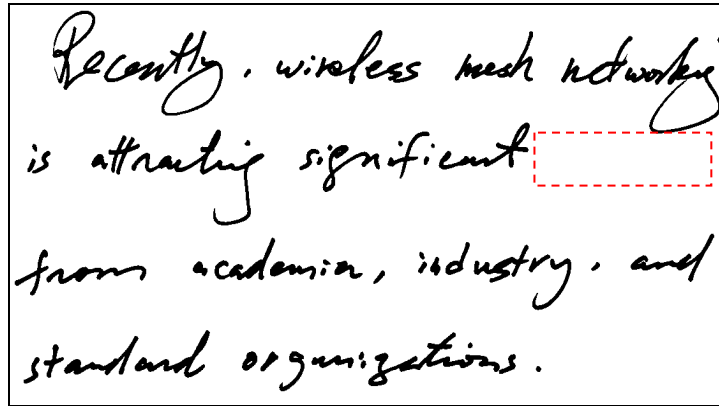 Recently, wireless mesh networking
is attracting significant
from academia, industry, and
standard organizations.